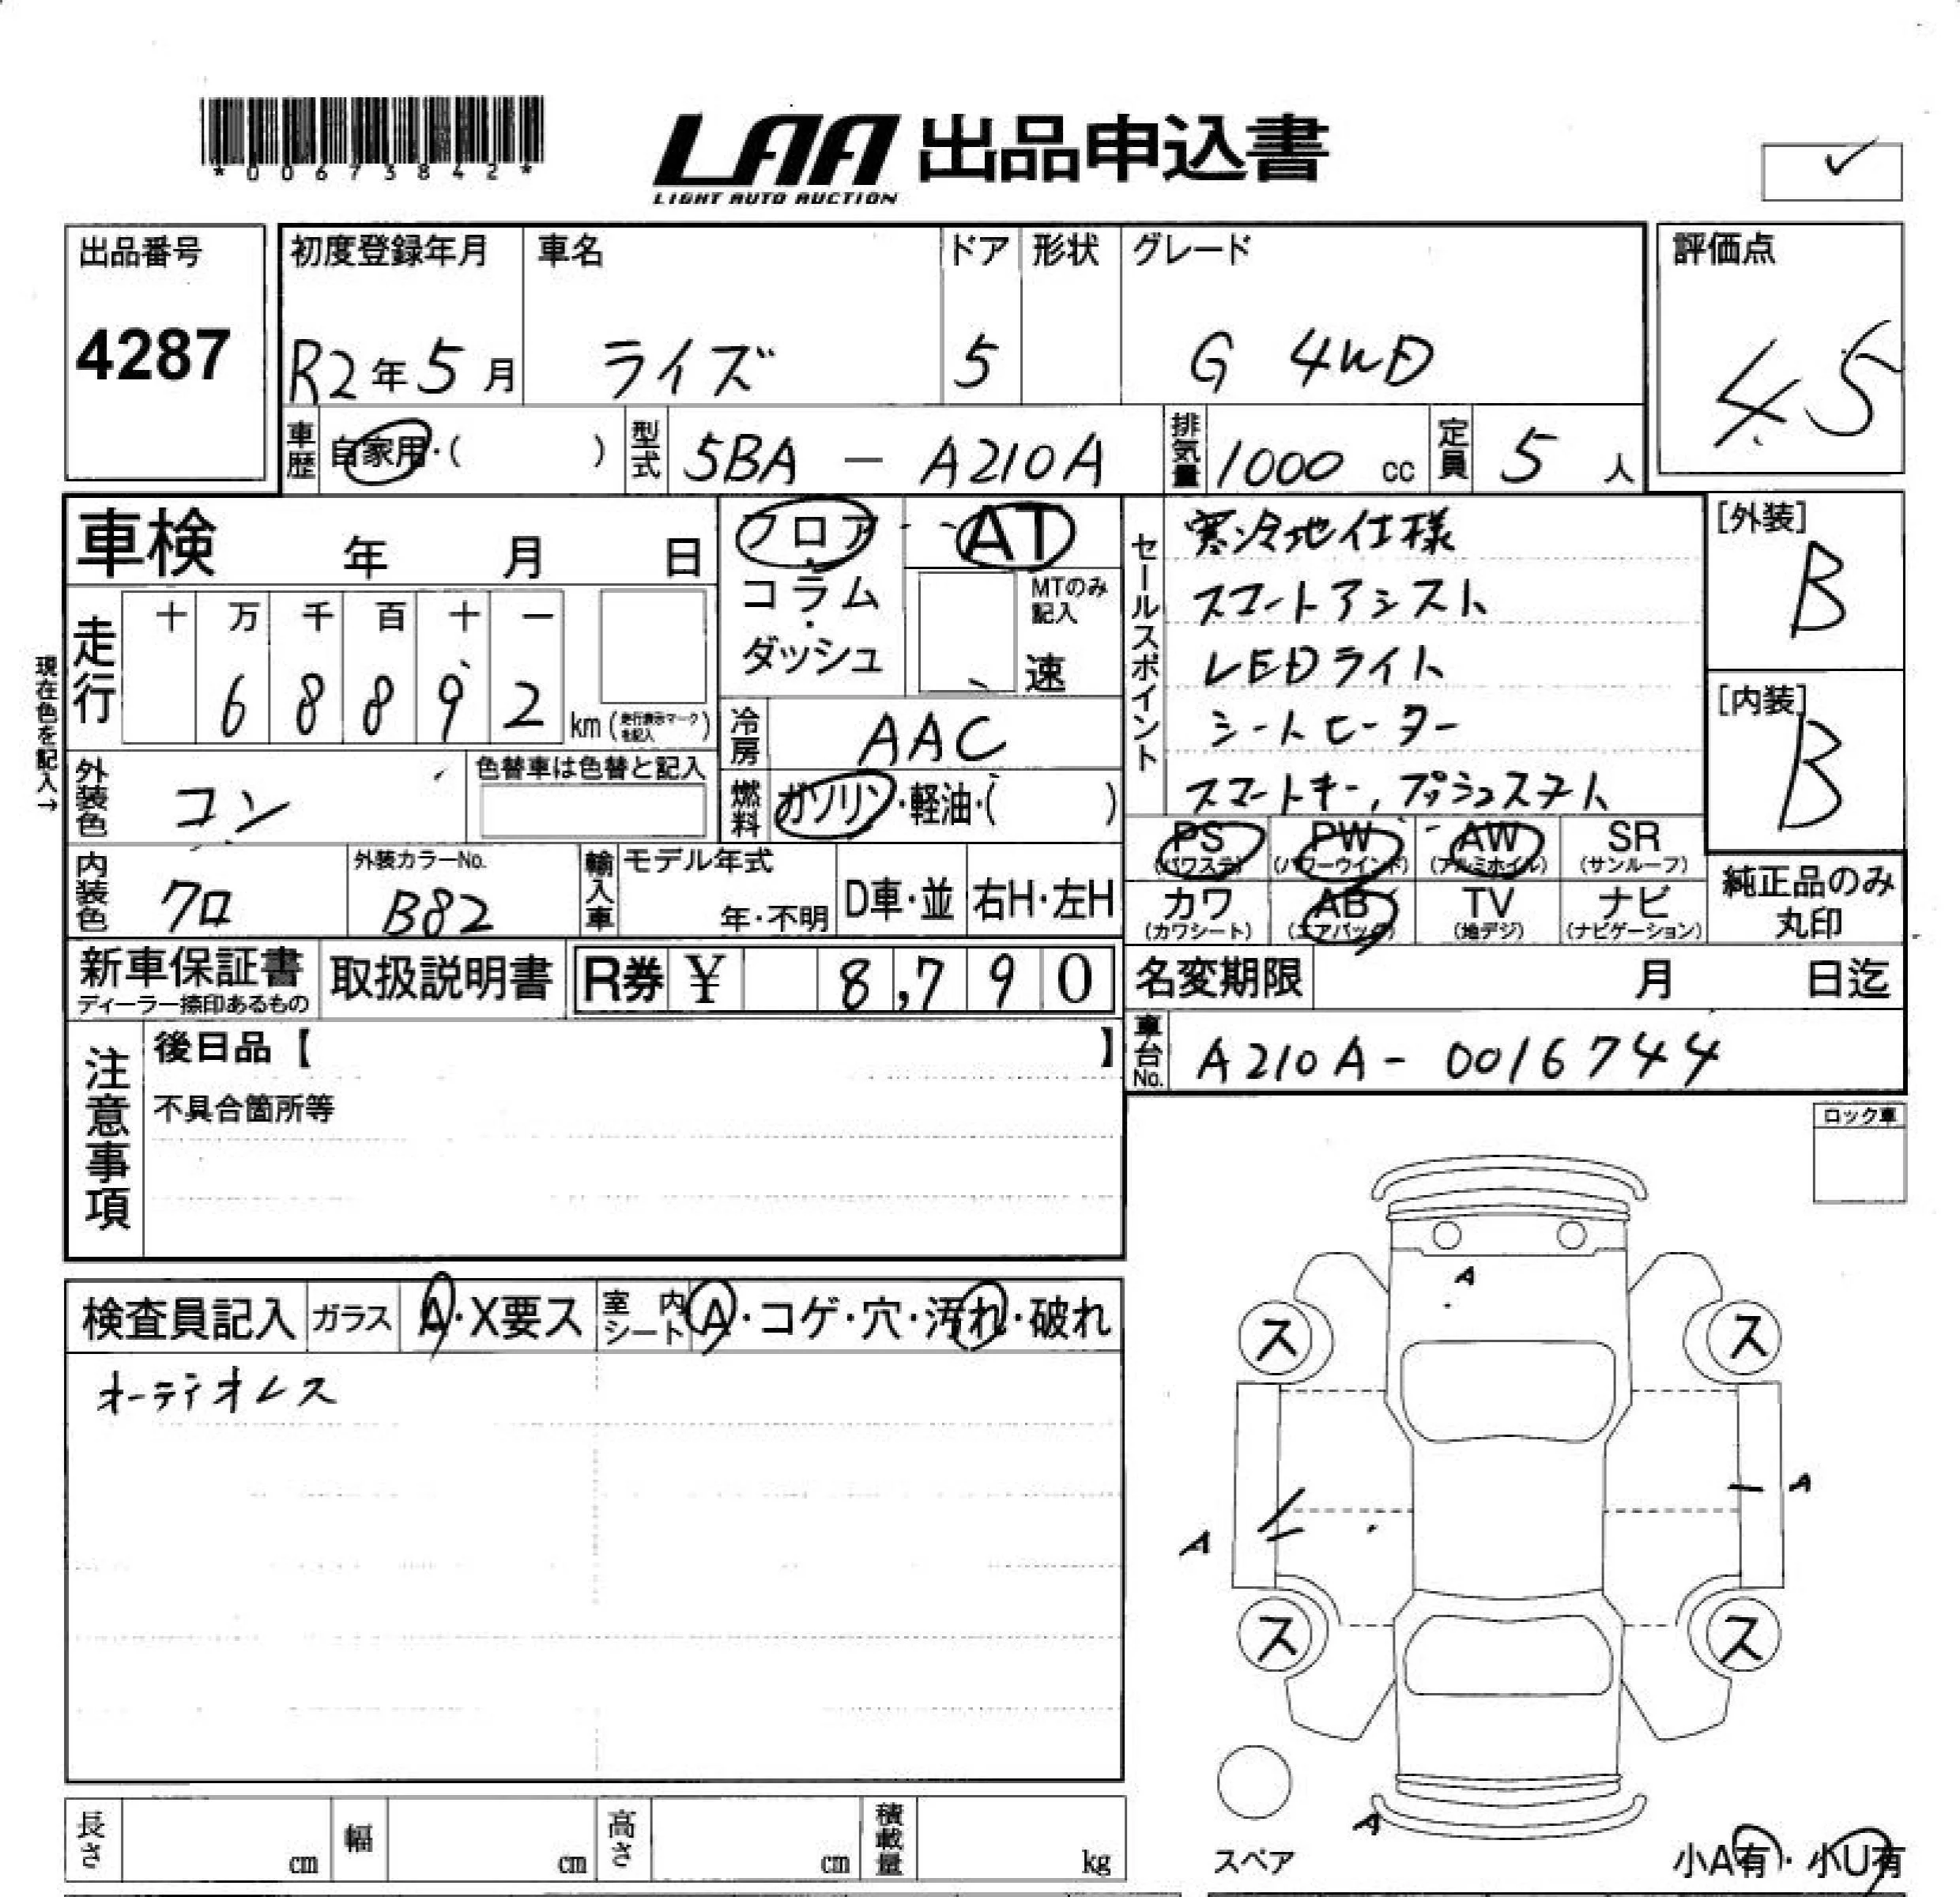 *00673842*
LAA 出品申込書
LIGHT AUTO AUCTION
出品番号 初度登録年月 車名 ドア 形状 グレード 評価点
4287 R2年5月 ライズ 5 G 4WD 4.5
車歴 自家用・( ) 型式 5BA - A210A 排気量 1000 cc 定員 5 人
車検 年 月 日
フロア・コラム・ダッシュ AT
MTのみ記入 速
セールスポイント
寒冷地仕様
スマートアシスト
LEDライト
シートヒーター
スマートキー, プッシュスタート
[外装] B
[内装] B
現在色を記入→
走行 十 万 千 百 十 一
6 8 8 9 2 km (走行表示マークを記入)
冷房 AAC
外装色 コン 色替車は色替と記入
燃料 ガソリン・軽油・( )
PS (パワステ) PW (パワーウインド) AW (アルミホイル) SR (サンルーフ)
カワ (カワシート) AB (エアバック) TV (地デジ) ナビ (ナビゲーション)
純正品のみ丸印
内装色 クロ 外装カラーNo. B82 輸入車 モデル年式 年・不明 D車・並 右H・左H
新車保証書 ディーラー捺印あるもの 取扱説明書 R券 ¥ 8,790
名変期限 月 日迄
車台No. A210A- 0016744
注意事項 後日品【 】
不具合箇所等
ロック車
検査員記入 ガラス A・X要ス 室内シート A・コゲ・穴・汚れ・破れ
オーディオレス
A
ス ス
A
A
ス ス
A
スペア
小A有・小U有
長さ cm 幅 cm 高さ cm 積載量 kg